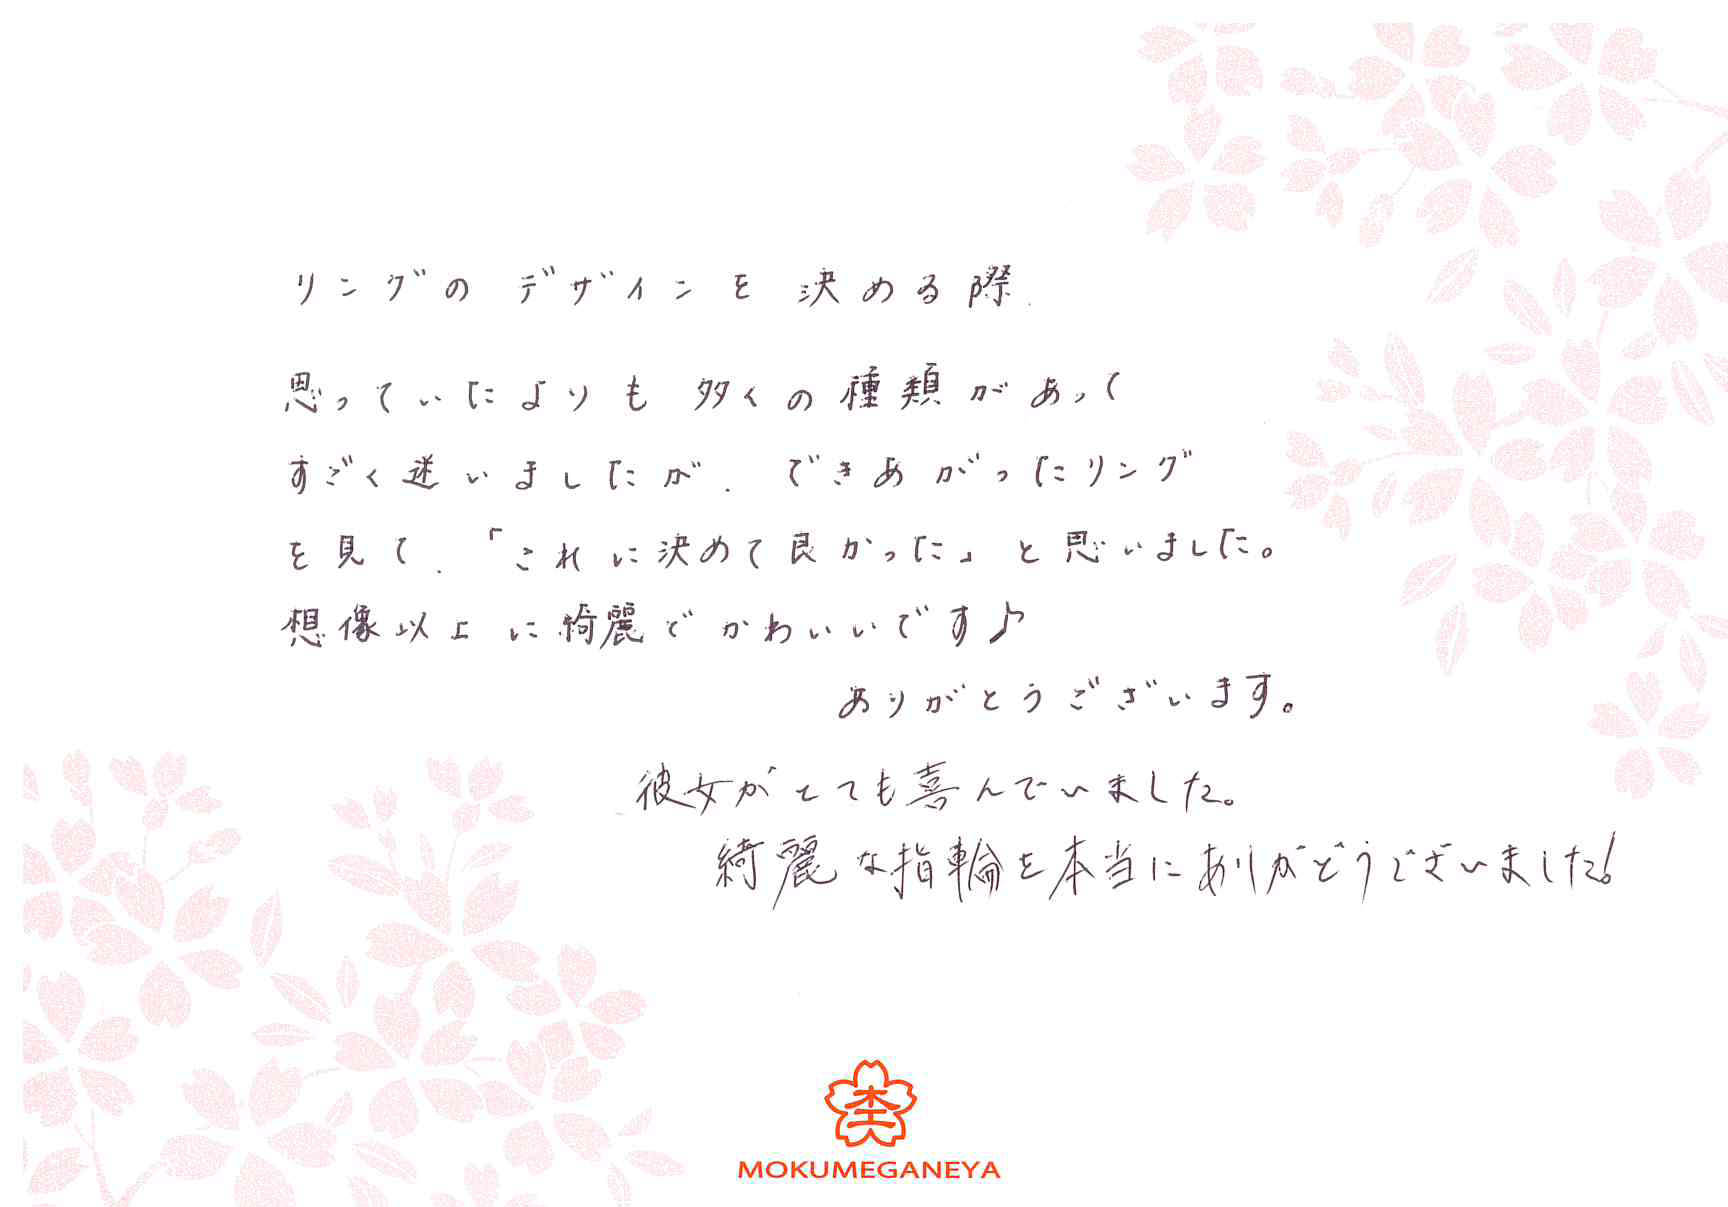 リングの デザインを 決める際、
思っていたよりも 多くの種類があって
すごく迷いましたが、できあがったリング
を見て、「これに決めて良かった」と思いました。
想像以上に綺麗でかわいいです♪
ありがとうございます。
彼女がとても喜んでいました。
綺麗な指輪を本当にありがとうございました!
杢
MOKUMEGANEYA